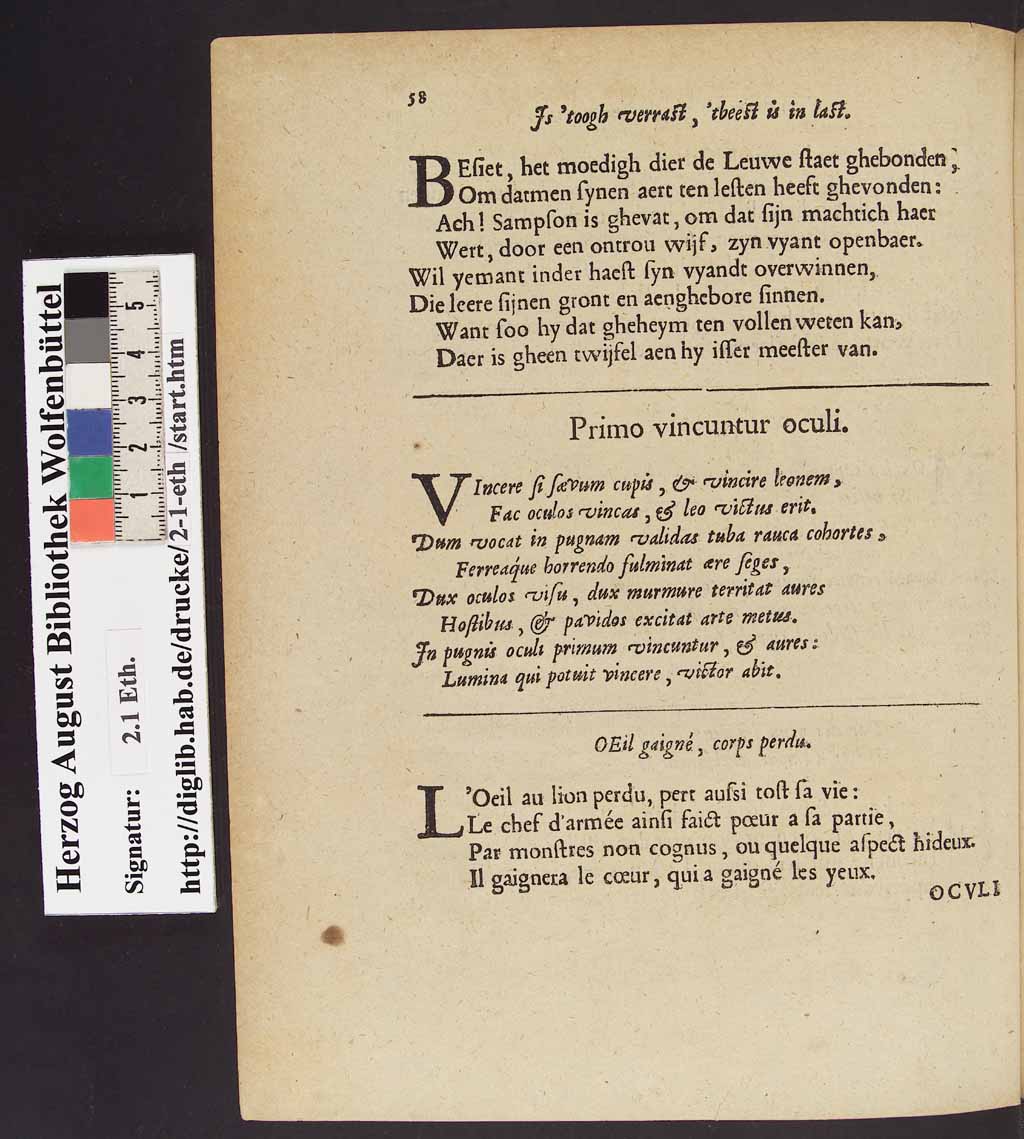 58
Js 'toogh verraſt, 'tbeeſt is in laſt.
BEſiet, het moedigh dier de Leuwe ſtaet ghebonden;
Om datmen ſynen aert ten leſten heeft ghevonden:
Ach! Sampſon is ghevat, om dat ſijn machtich haer
Wert, door een ontrou wijf, zyn vyant openbaer.
Wil yemant inder haeſt ſyn vyandt overwinnen,
Die leere ſijnen gront en aenghebore ſinnen.
Want ſoo hy dat gheheym ten vollen weten kan,
Daer is gheen twijfel aen hy iſſer meeſter van.
Primo vincuntur oculi.
VIncere ſi ſævum cupis, & vincire leonem,
Fac oculos vincas, & leo victus erit.
Dum vocat in pugnam validas tuba rauca cohortes,
Ferreaq́ue horrendo fulminat ære ſeges,
Dux oculos viſu, dux murmure territat aures
Hoſtibus, & pavidos excitat arte metus.
Jn pugnis oculi primum vincuntur, & aures:
Lumina qui potuit vincere, victor abit.
OEil gaigné, corps perdu.
L'Oeil au lion perdu, pert auſsi toſt ſa vie:
Le chef d'armée ainſi faict pœur a ſa partie,
Par monſtres non cognus, ou quelque aſpect hideux.
Il gaignera le cœur, qui a gaigné les yeux.
OCVLI
Herzog August Bibliothek Wolfenbüttel
Signatur: 2.1 Eth.
http://diglib.hab.de/drucke/2-1-eth/start.htm
1 2 3 4 5